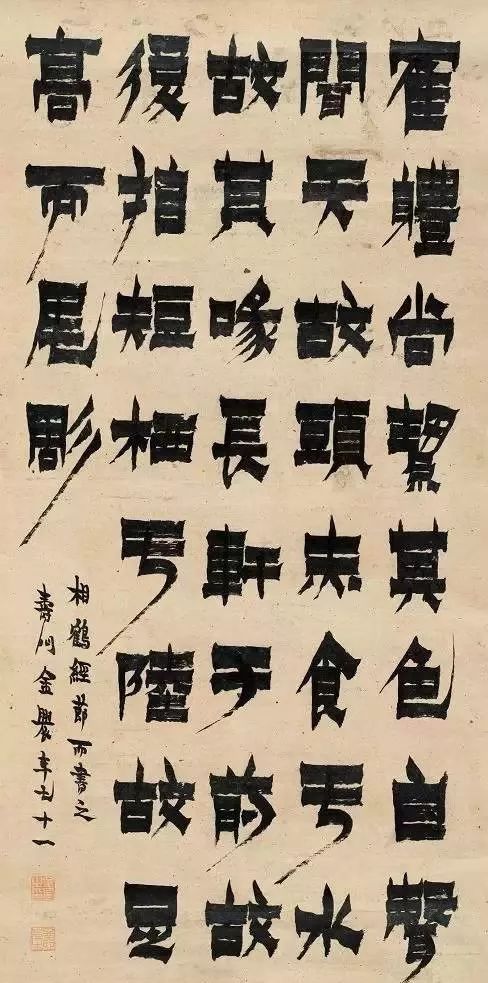 寉體尚絜其色白聲
聞天故頭赤食亏水
故其喙長軒于前故
後指短栖亏陸故足
高而尾彫
相鶴經節而書之
壽門金農年七十一